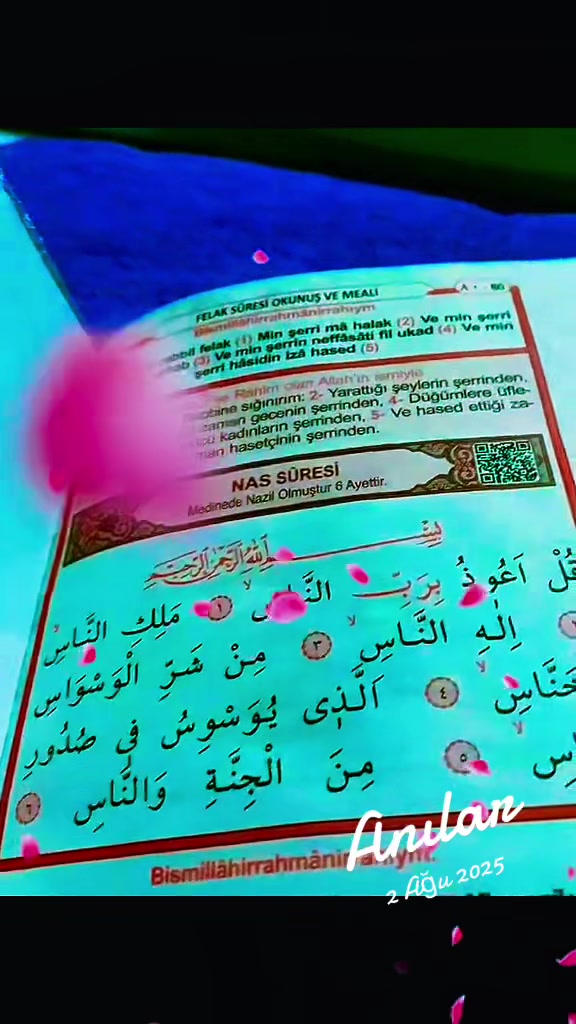 FELAK SÛRESİ OKUNUŞ VE MEALİ
A 86
Bismillâhirrahmânirrahîym
felak (1) Min şerri mâ halak (2) Ve min şerri
(3) Ve min şerrin neffâsâti fil ukad (4) Ve min
şerri hâsidin izâ hased (5)
Rahîm olan Allah'ın ismiyle
sığınırım: 2- Yarattığı şeylerin şerrinden,
gecenin şerrinden, 4- Düğümlere üfle-
kadınların şerrinden, 5- Ve hased ettiği za-
hasetçinin şerrinden.
NAS SÛRESİ
Medinede Nazil Olmuştur 6 Ayettir.
بِسْمِ اللّٰهِ الرَّحْمٰنِ الرَّحِيمِ
قُلْ اَعُوذُ بِرَبِّ النَّاسِ ١ مَلِكِ النَّاسِ
اِلٰهِ النَّاسِ ٣ مِنْ شَرِّ الْوَسْوَاسِ
٤ اَلَّذِى يُوَسْوِسُ فِى صُدُورِ
٥ مِنَ الْجِنَّةِ وَالنَّاسِ ٦
Anılar
2 Ağu 2025